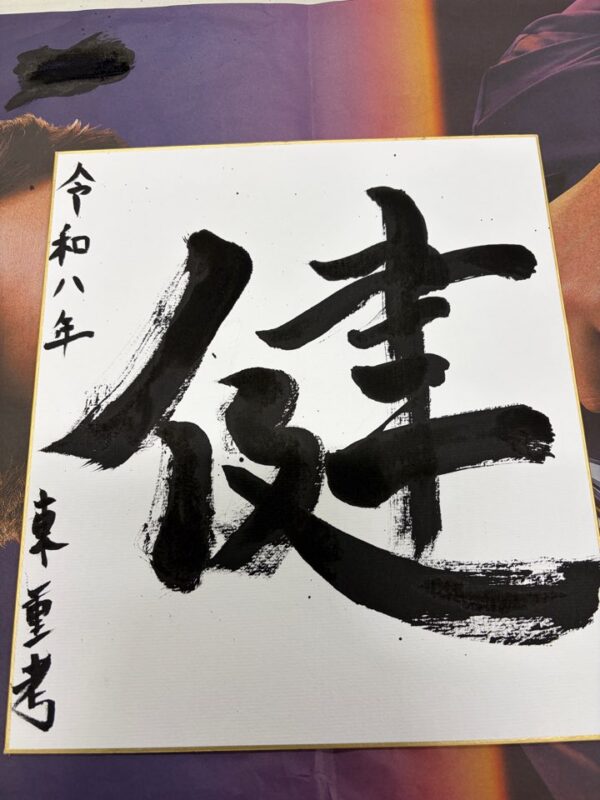 健
令和八年
東重考